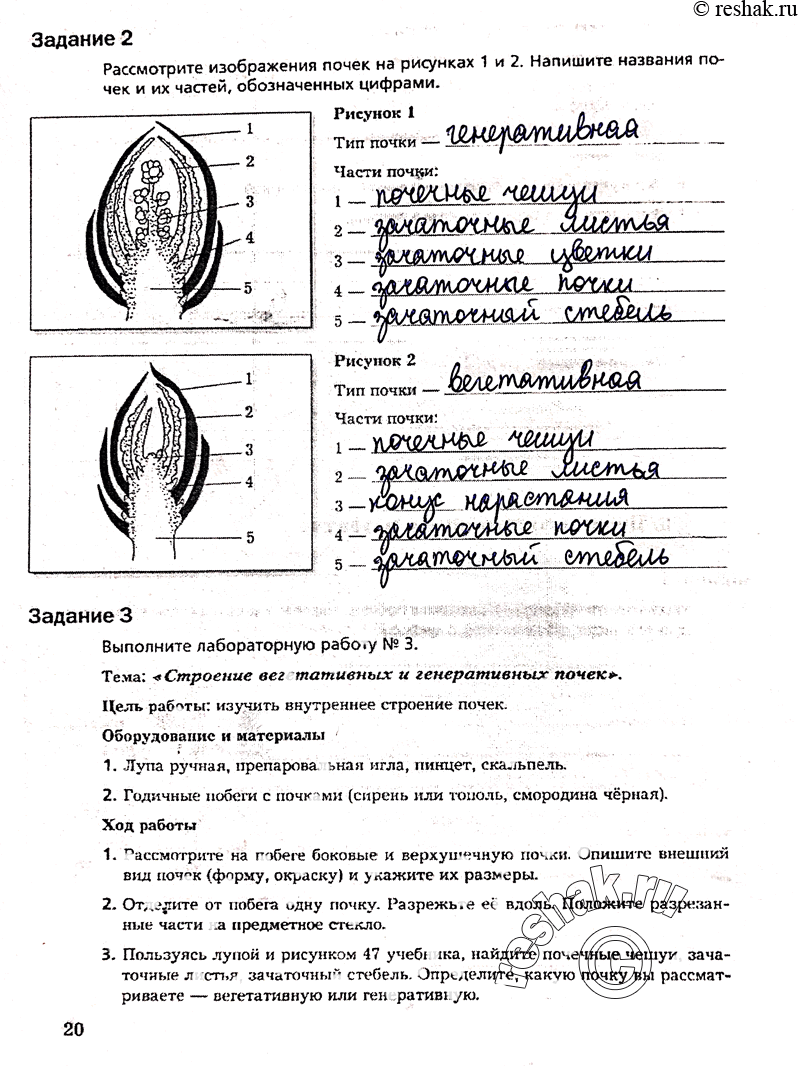 © reshak.ru
Задание 2
Рассмотрите изображения почек на рисунках 1 и 2. Напишите названия по-
чек и их частей, обозначенных цифрами.
1
2
3
4
5
Рисунок 1
Тип почки — генеративная
Части почки:
1 — почечные чешуи
2 — зачаточные листья
3 — зачаточные цветки
4 — зачаточные почки
5 — зачаточный стебель
1
2
3
4
5
Рисунок 2
Тип почки — вегетативная
Части почки:
1 — почечные чешуи
2 — зачаточные листья
3 — конус нарастания
4 — зачаточные почки
5 — зачаточный стебель
Задание 3
Выполните лабораторную работу № 3.
Тема: «Строение вегетативных и генеративных почек».
Цель работы: изучить внутреннее строение почек.
Оборудование и материалы
1. Лупа ручная, препаровальная игла, пинцет, скальпель.
2. Годичные побеги с почками (сирень или тополь, смородина чёрная).
Ход работы
1. Рассмотрите на побеге боковые и верхушечную почки. Опишите внешний
вид почек (форму, окраску) и укажите их размеры.
2. Отделите от побега одну почку. Разрежьте её вдоль. Положите разрезан-
ные части на предметное стекло.
3. Пользуясь лупой и рисунком 47 учебника, найдите почечные чешуи, зача-
точные листья, зачаточный стебель. Определите, какую почку вы рассмат-
риваете — вегетативную или генеративную.
reshak.ru
©
20